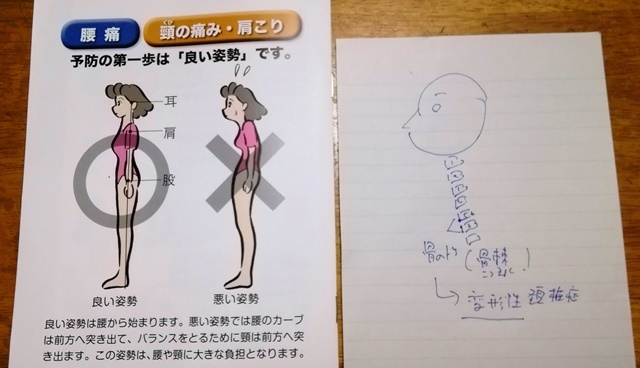 腰痛
くび
頸の痛み・肩こり
予防の第一歩は「良い姿勢」です。
耳
肩
股
良い姿勢
悪い姿勢
良い姿勢は腰から始まります。悪い姿勢では腰のカーブ
は前方へ突き出て、バランスをとるために頸は前方へ突
き出ます。この姿勢は、腰や頸に大きな負担となります。
骨のトゲ(骨棘
こつきょく
変形性頚椎症